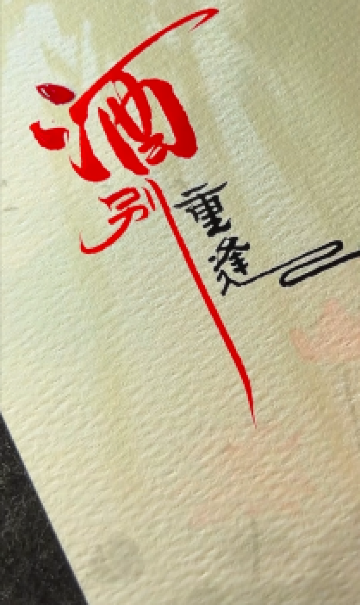 酒别
重逢